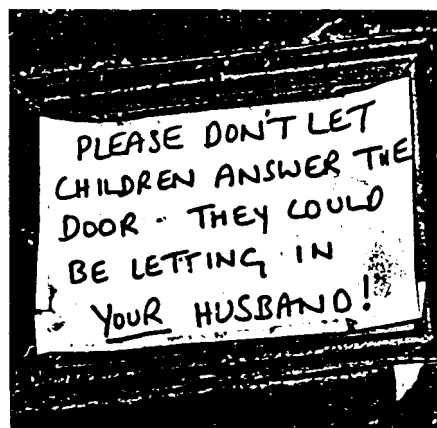 PLEASE DON'T LET
CHILDREN ANSWER THE
DOOR - THEY COULD
BE LETTING IN
YOUR HUSBAND!